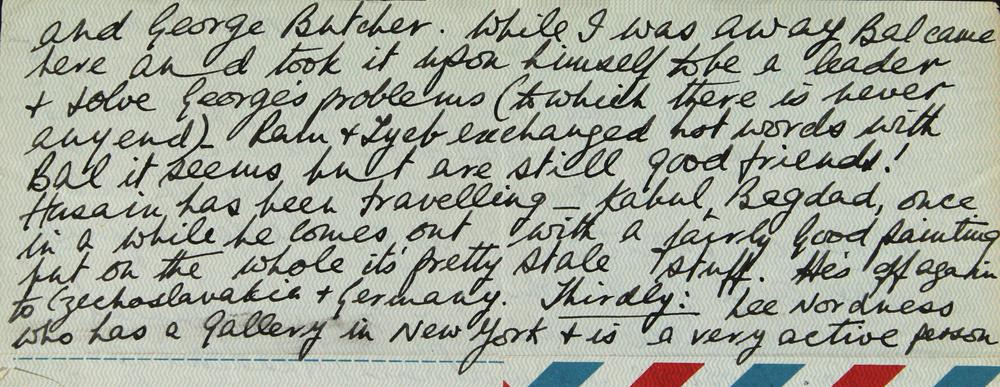 and George Butcher. While I was away Bal came
here an d took it upon himself to be a leader
+ solve George's problems (to which there is never
any end)_ Ram + Tyeb exchanged hot words with
Bal it seems but are still good friends!
Husain has been travelling _ Kabul, Bagdad, once
in a while he comes out with a fairly good painting
but on the whole it's pretty stale stuff. He's off again
to Czechoslavakia + Germany. Thirdly: Lee Nordness
who has a Gallery in New York + is a very active person